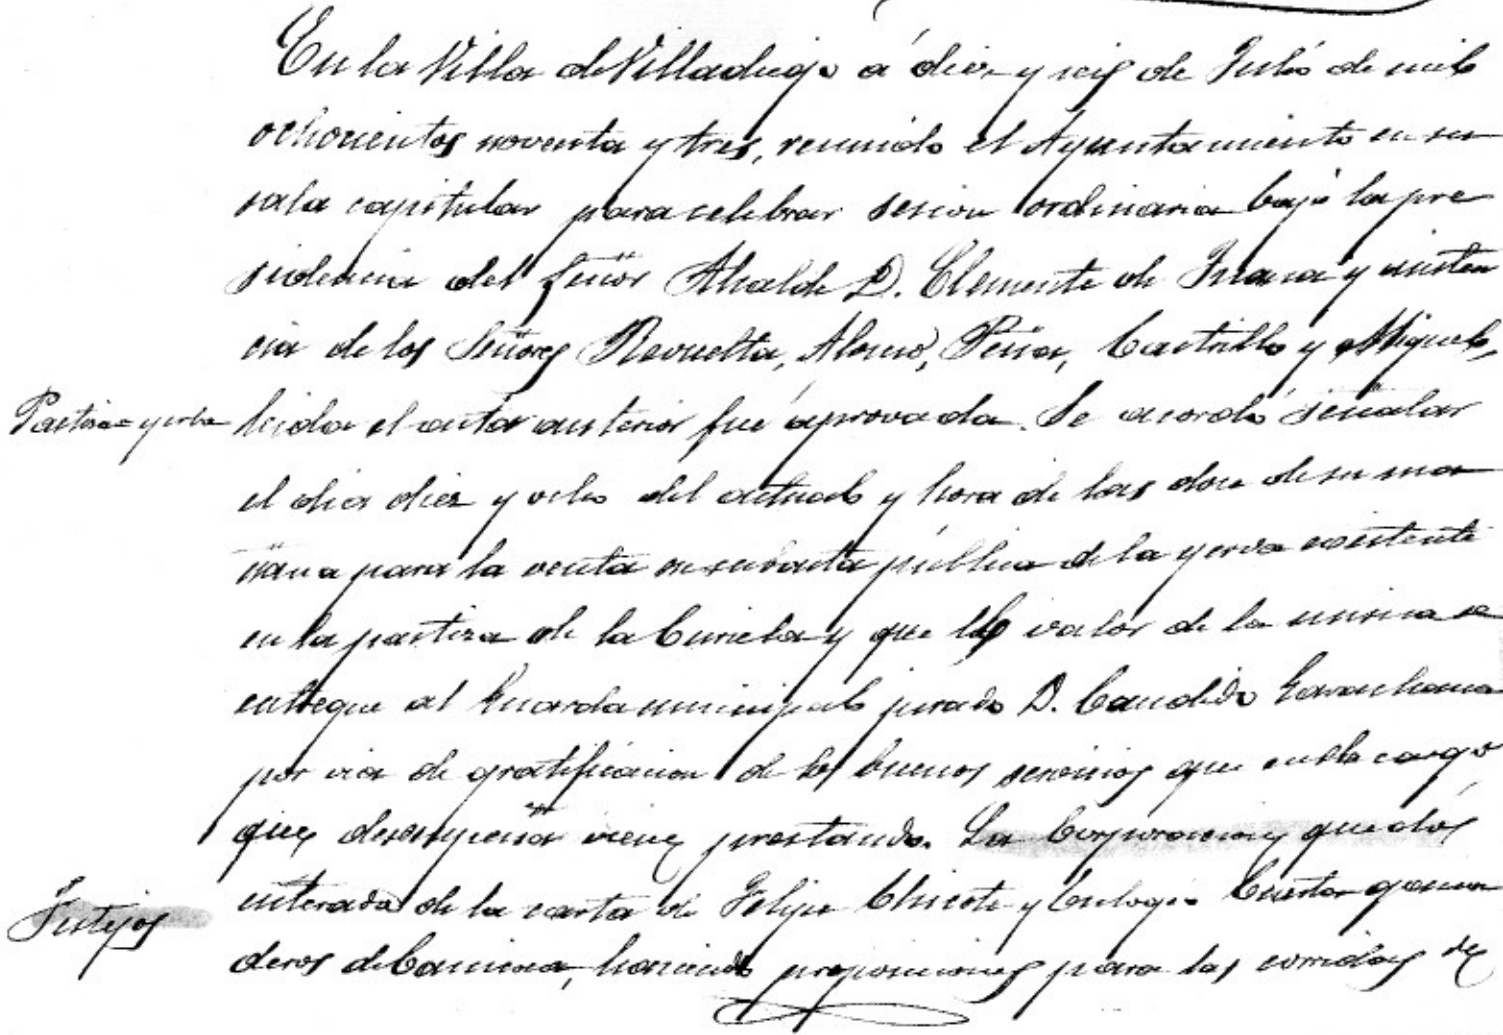 En la Villa de Villadiego a diez y seis de Julio de mil
ochocientos noventa y tres, reunido el Ayuntamiento en su
sala capitular para celebrar sesion ordinaria bajo la pre
sidencia del Señor Alcalde D. Clemente de y asisten
cia de los Señores Revuelta, Alonso, Peña, Castrillo y Miguel,
Pastiza y yerba
leida el acta anterior fué aprovada. Se acordó señalar
el dia diez y ocho del actual y hora de las doce de su ma
ñana para la venta en subasta pública de la yerva existente
en la pastiza de la y que el valor de la misma se
entregue al Guarda municipal jurado D. Candido
por via de gratificacion de los buenos servicios que en el cargo
que desempeña viene prestando. La Corporacion quedó
Festejos
enterada de la carta de Felipe Chicote y Eulogio Cuesta gana
deros de haciendo proposiciones para las corridas de